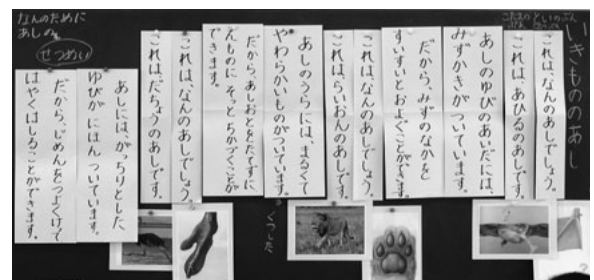 いきもののあし
こたえの といのぶん
ぶん
これは、なんのあしでしょう。
これは、あひるのあしです。
あしのゆびのあいだには、
みずかきがついています。
だから、みずのなかを
すいすいとおよぐことができます。
これは、なんのあしでしょう。
これは、らいおんのあしです。
あしのうらには、まるくて
やわらかいものがついています。
くっした
だから、あしおとをたてずに
えものに そっと ちかづくことが
できます。
これは、なんのあしでしょう。
これは、だちょうのあしです。
あしには、がっちりとした
ゆびが にほん ついています。
だから、じめんをつよくけって
はやくはしることができます。
なんのために
あしの
せつめい